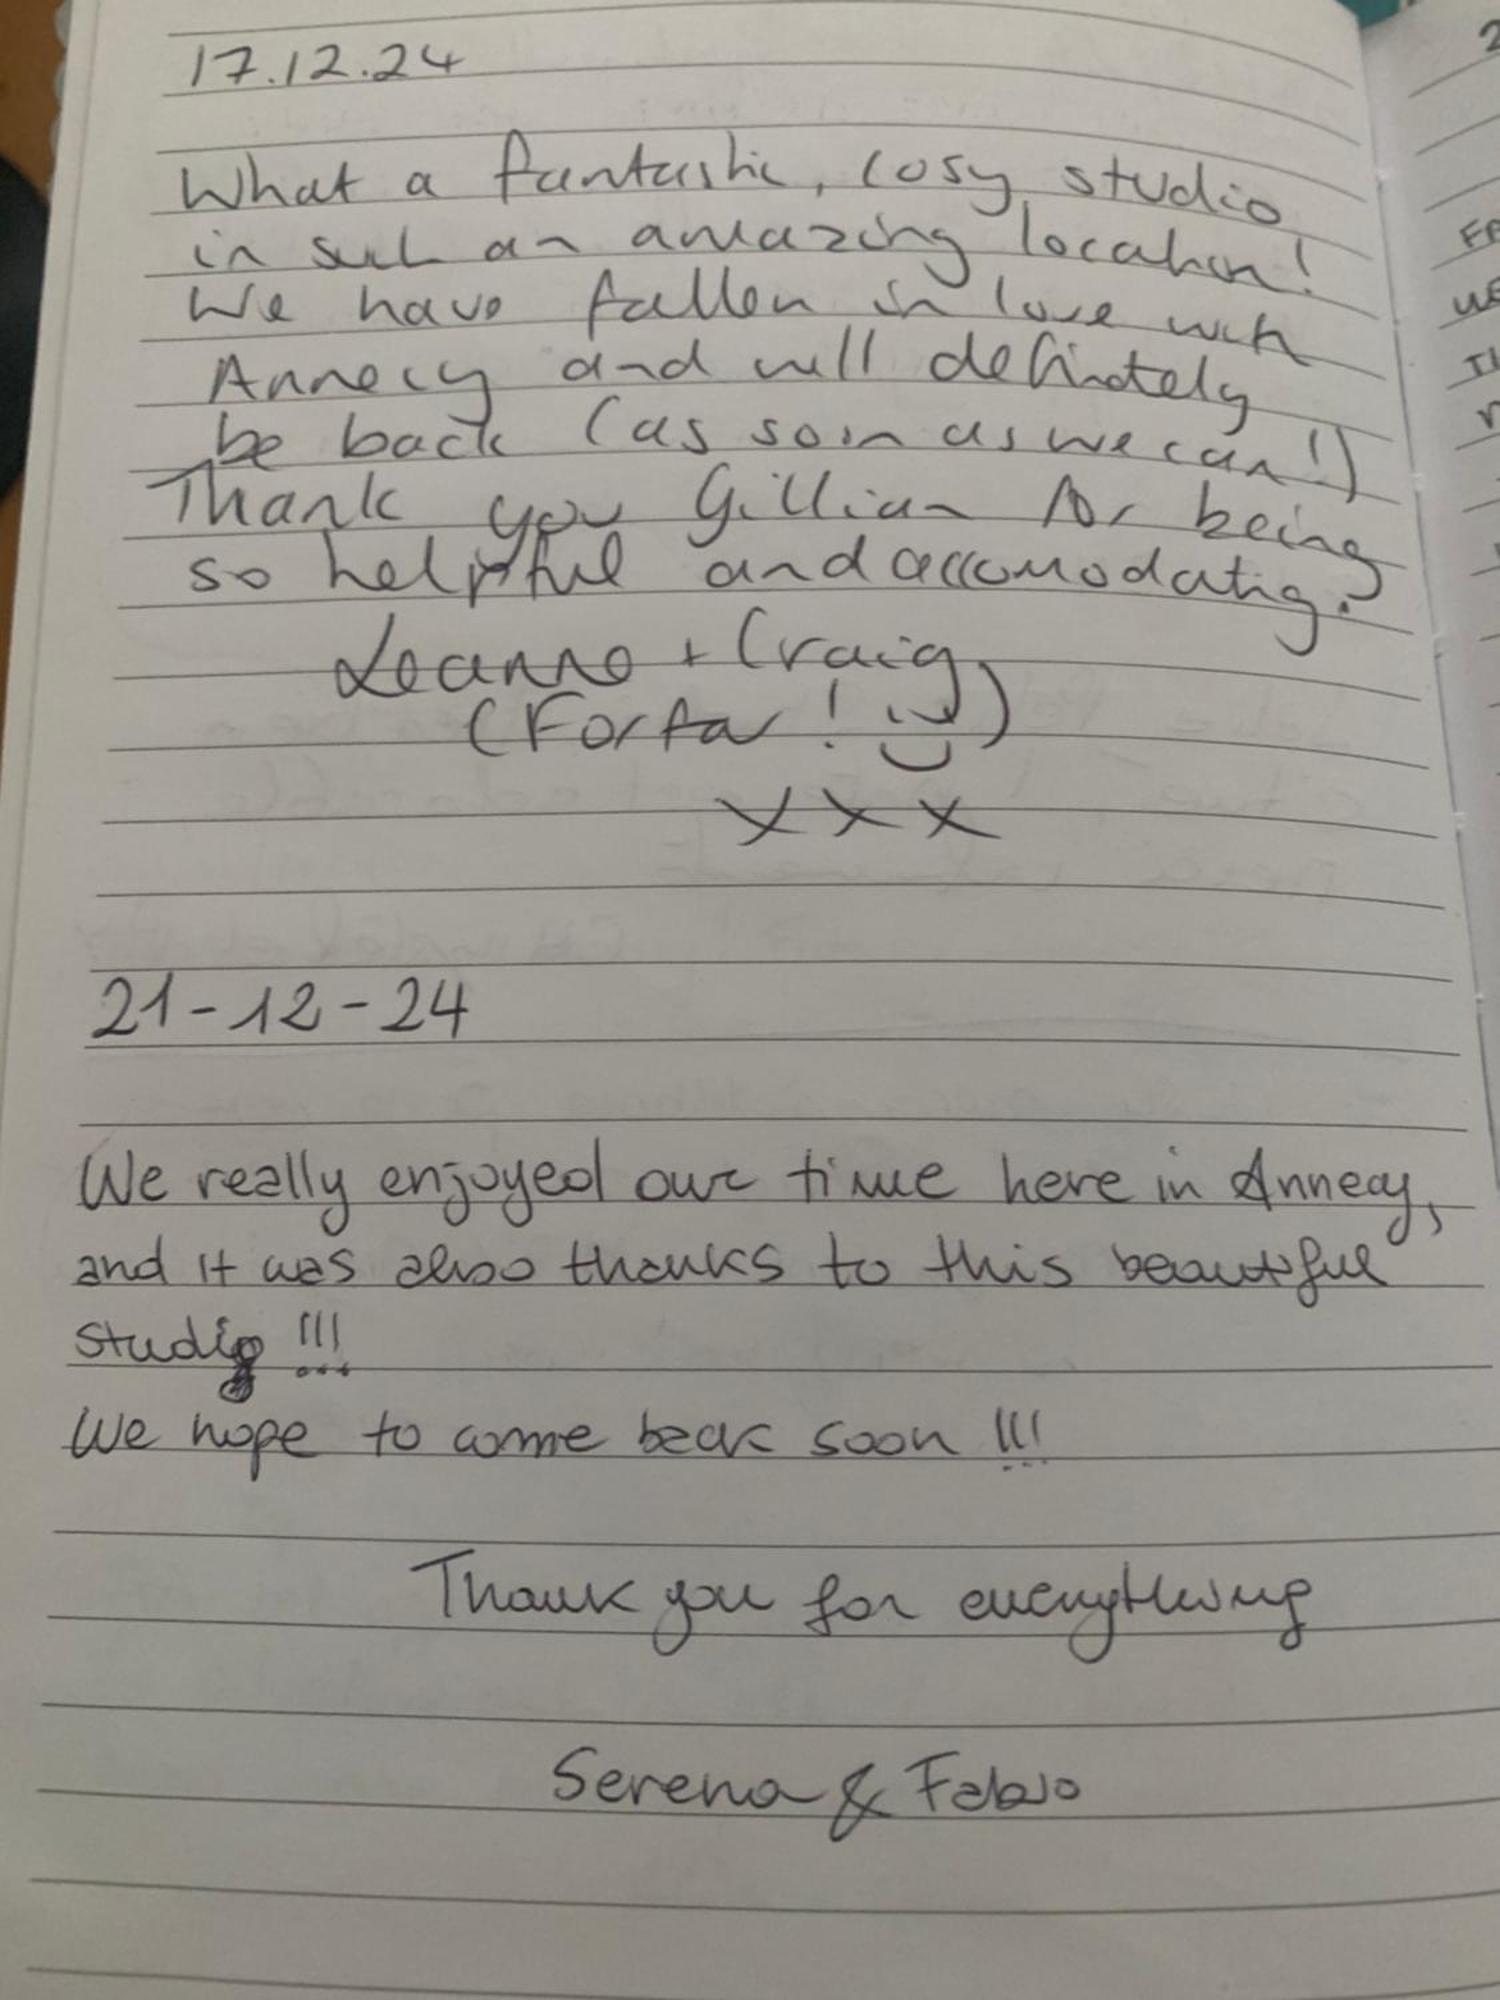 17.12.24
What a fantastic, cosy studio
in such an amazing location!
We have fallen in love with
Annecy and will definately
be back (as soon as we can!)
Thank you Gillian for being
so helpful and accomodating.
Leanne + Craig
(Forfar! :))
xxx
21-12-24
We really enjoyed our time here in Annecy,
and it was also thanks to this beautiful
studio !!!
We hope to come back soon !!!
Thank you for everything
Serena & Fabio